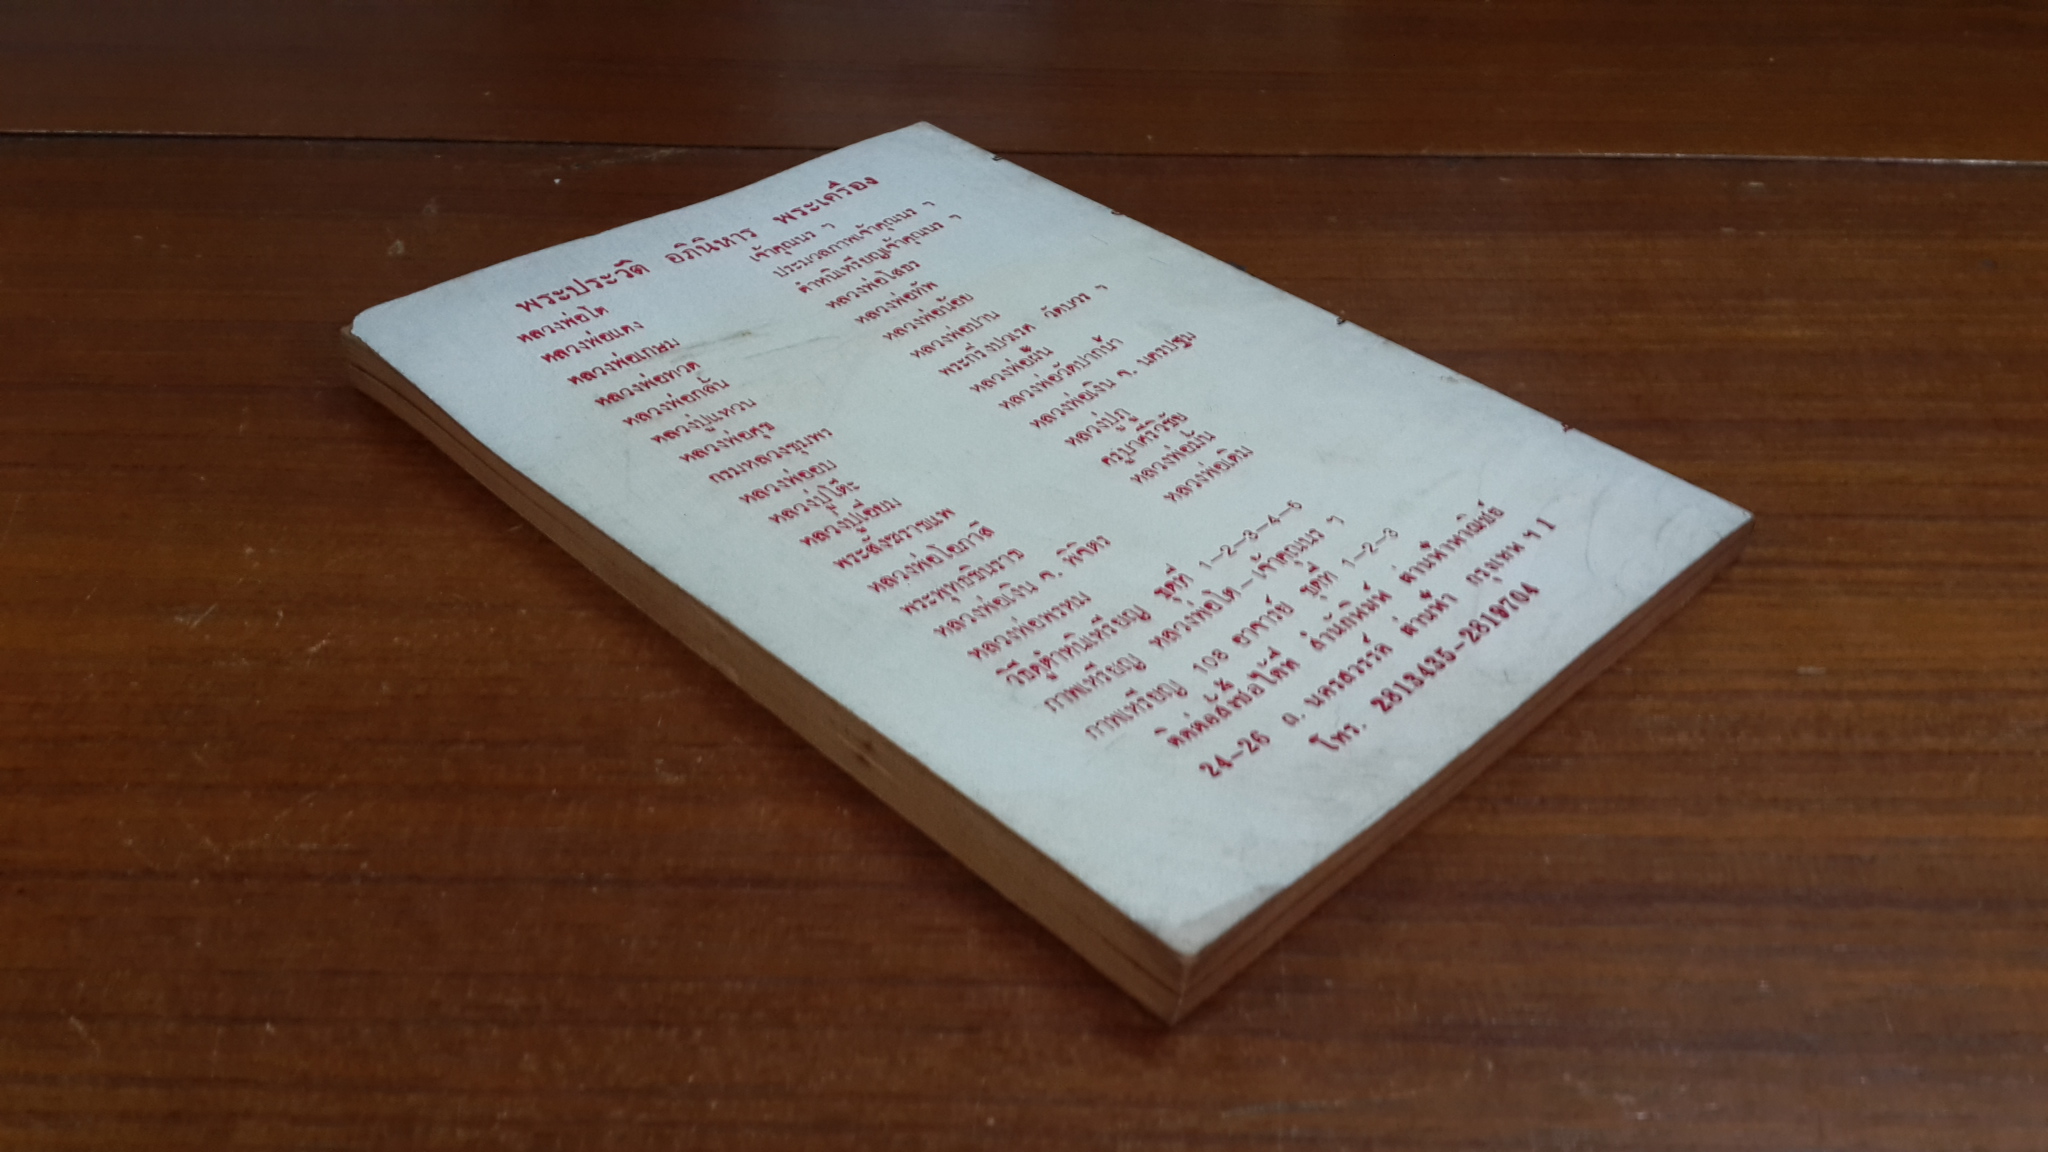 พระประวัติ อภินิหาร พระเครื่อง
หลวงพ่อโต
หลวงพ่อแดง
หลวงพ่อเกษม
หลวงพ่อทวด
หลวงพ่อกลั่น
หลวงปู่แหวน
หลวงพ่อศุข
กรมหลวงชุมพร
หลวงพ่ออบ
หลวงปู่โต๊ะ
หลวงปู่เอี่ยม
พระสังฆราชแพ
หลวงพ่อโอภาสี
พระพุทธชินราช
หลวงพ่อเงิน จ. พิจิตร
หลวงพ่อพรหม
เจ้าคุณนร ฯ
ประมวลภาพเจ้าคุณนร ฯ
ตำหนิเหรียญเจ้าคุณนร ฯ
หลวงพ่อโสธร
หลวงพ่อทัพ
หลวงพ่อน้อย
หลวงพ่อปาน
พระกริ่งปวเรศ วัดบวร ฯ
หลวงพ่อผัน
หลวงพ่อวัดปากน้ำ
หลวงพ่อเงิน จ. นครปฐม
หลวงปู่ภู
ครูบาศรีวิชัย
หลวงพ่อมั่น
หลวงพ่อเดิม
วิธีดูตำหนิเหรียญ ชุดที่ 1-2-3-4-5
ภาพเหรียญ หลวงพ่อโต-เจ้าคุณนร ฯ
ภาพเหรียญ 108 อาจารย์ ชุดที่ 1-2-3
ติดต่อสั่งซื้อได้ที่ สำนักพิมพ์ ผ่านฟ้าพาณิชย์
24-26 ถ. นครสวรรค์ ผ่านฟ้า กรุงเทพ ฯ 1
โทร. 2813435-2819704